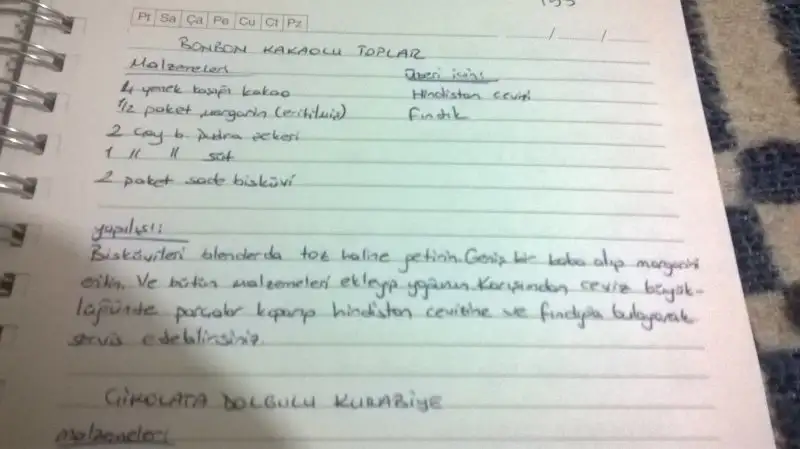 Pt Sa Ça Pe Cu Ct Pz
/ /
BONBON KAKAOLU TOPLAR
Malzemeleri
Üzeri için:
4 yemek kaşığı kakao
Hindistan cevizi
1/2 paket margarin (eritilmiş)
Fındık
2 çay b. pudra şekeri
1 " " süt
2 paket sade bisküvi
yapılışı:
Bisküvileri blenderda toz haline getirin. Geniş bir kaba alıp margarini
eritin. Ve bütün malzemeleri ekleyip yoğurun. Karışımdan ceviz büyük-
lüğünde parçalar koparıp hindistan cevizine ve fındığa bulayarak
servis edebilirsiniz.
ÇİKOLATA DOLGULU KURABİYE
Malzemeleri